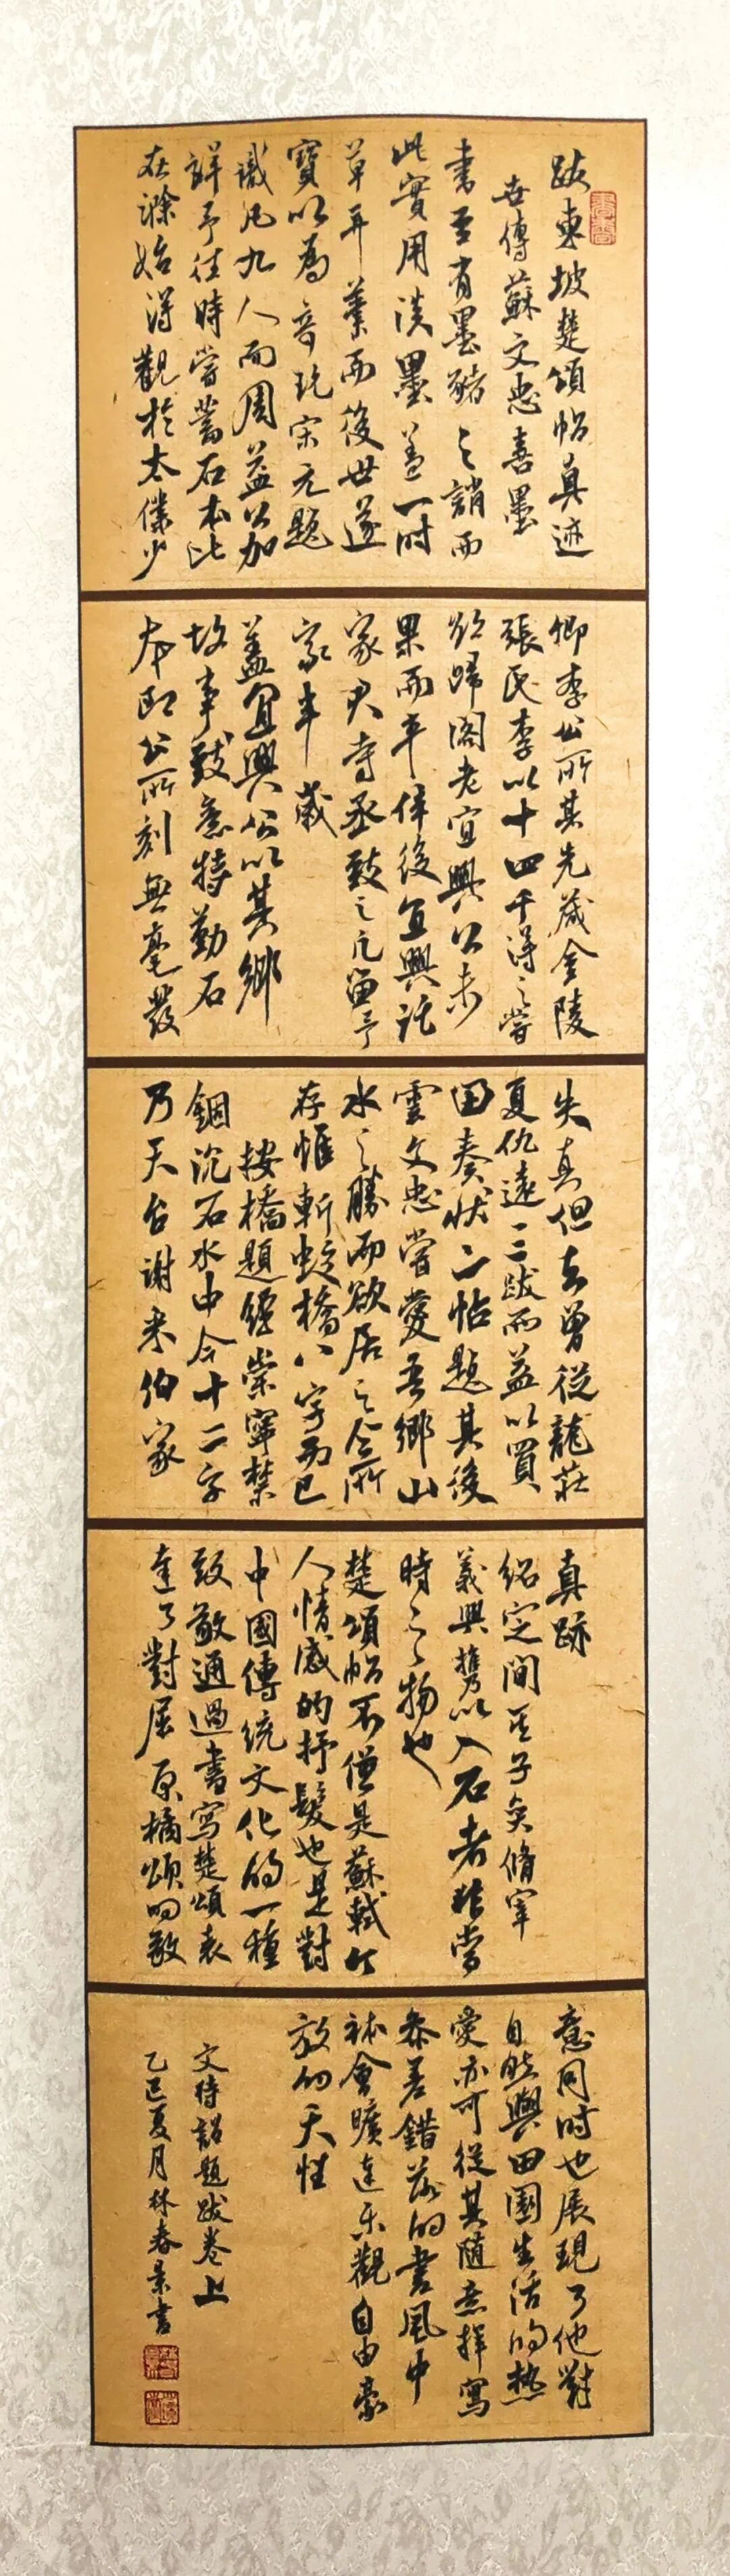 跋東坡楚頌帖真迹
世傳蘇文忠喜墨
書至有墨豬之誚而
此實用淡墨蓋一時
草弄筆而後世遂
寶以為奇玩宋元題
識凡九人而周益公加
詳予往時嘗蓄石本比
在滁始得觀於太僕少
卿李公所其先藏金陵
張氏李以十四千得之嘗
欲歸閣老宜興公未
果而卒俾後宜興託
家君寺丞致之凡留予
家半歲
蓋宜興公以其鄉
故事致意特勤石
本即公所刻無毫發
失真但去曾從龍莊
夏仇遠三跋而益以買
田奏狀二帖題其後
雲文忠嘗愛吾鄉山
水之勝而欲居之今所
存惟斬蛟橋八字而已
按橋題經崇寧禁
錮沉石水中今十二字
乃天台謝采伯家
真跡
紹定間其子奕脩宰
義興攜以入石者非當
時之物也
楚頌帖不僅是蘇軾個
人情感的抒髮也是對
中國傳統文化的一種
致敬通過書寫楚頌表
達了對屈原橘頌的敬
意同時也展現了他對
自然與田園生活的熱
愛亦可從其隨意揮寫
參差錯落的書風中
體會曠達樂觀自由豪
放的天性
文待詔題跋卷上
乙巳夏月林春景書